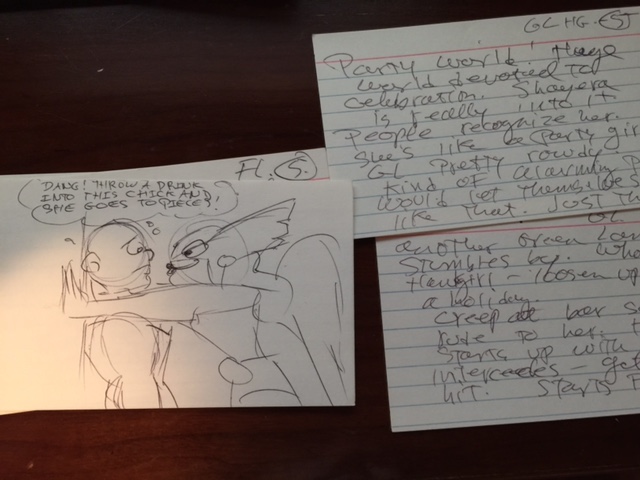 GL HG. (5)
Party world! Huge
world devoted to
celebration. Shayera
is really into it
People recognize her.
She's like a party gir
GL pretty rowdy
kind of alarming
would let themselves
like that. Just th
FL. (5.)
DANG! THROW A DRINK
INTO THIS CHICK AND
SHE GOES TO PIECES!
another Green Lan
stumbles by. Who
Hawkgirl - loosen up
a holiday.
creep at her s
rude to her.
starts up with
intercedes - get
hit. Starts